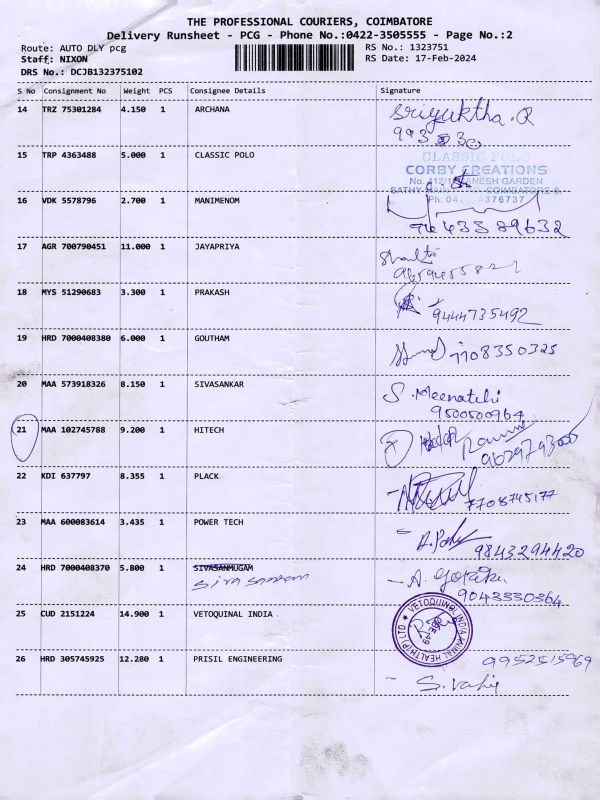 THE PROFESSIONAL COURIERS, COIMBATORE
Delivery Runsheet - PCG - Phone No.:0422-3505555 - Page No.:2
Route: AUTO DLY pcg RS No.: 1323751
Staff: NIXON RS Date: 17-Feb-2024
DRS No.: DCJB132375102
S No Consignment No Weight PCS Consignee Details Signature
14 TRZ 75301284 4.150 1 ARCHANA Sriyuktha.R
15 TRP 4363488 5.000 1 CLASSIC POLO
CLASSIC POLO
CORBY CREATIONS
GANESH GARDEN
16 VDK 5578796 2.700 1 MANIMENOM
4376737
17 AGR 700790451 11.000 1 JAYAPRIYA
18 MYS 51290683 3.300 1 PRAKASH
9444735492
19 HRD 7000408380 6.000 1 GOUTHAM
7708350325
20 MAA 573918326 8.150 1 SIVASANKAR
S. Meenatchi
9500500964
21 MAA 102745788 9.200 1 HITECH
22 KDI 637797 8.355 1 PLACK
7708745177
23 MAA 600083614 3.435 1 POWER TECH
9843294420
24 HRD 7000408370 5.800 1 SIVASANMUGAM
9043330364
25 CUD 2151224 14.900 1 VETOQUINOL INDIA
VETOQUINOL INDIA ANIMAL HEALTH (P) LTD
26 HRD 305745925 12.280 1 PRISIL ENGINEERING
9952515969